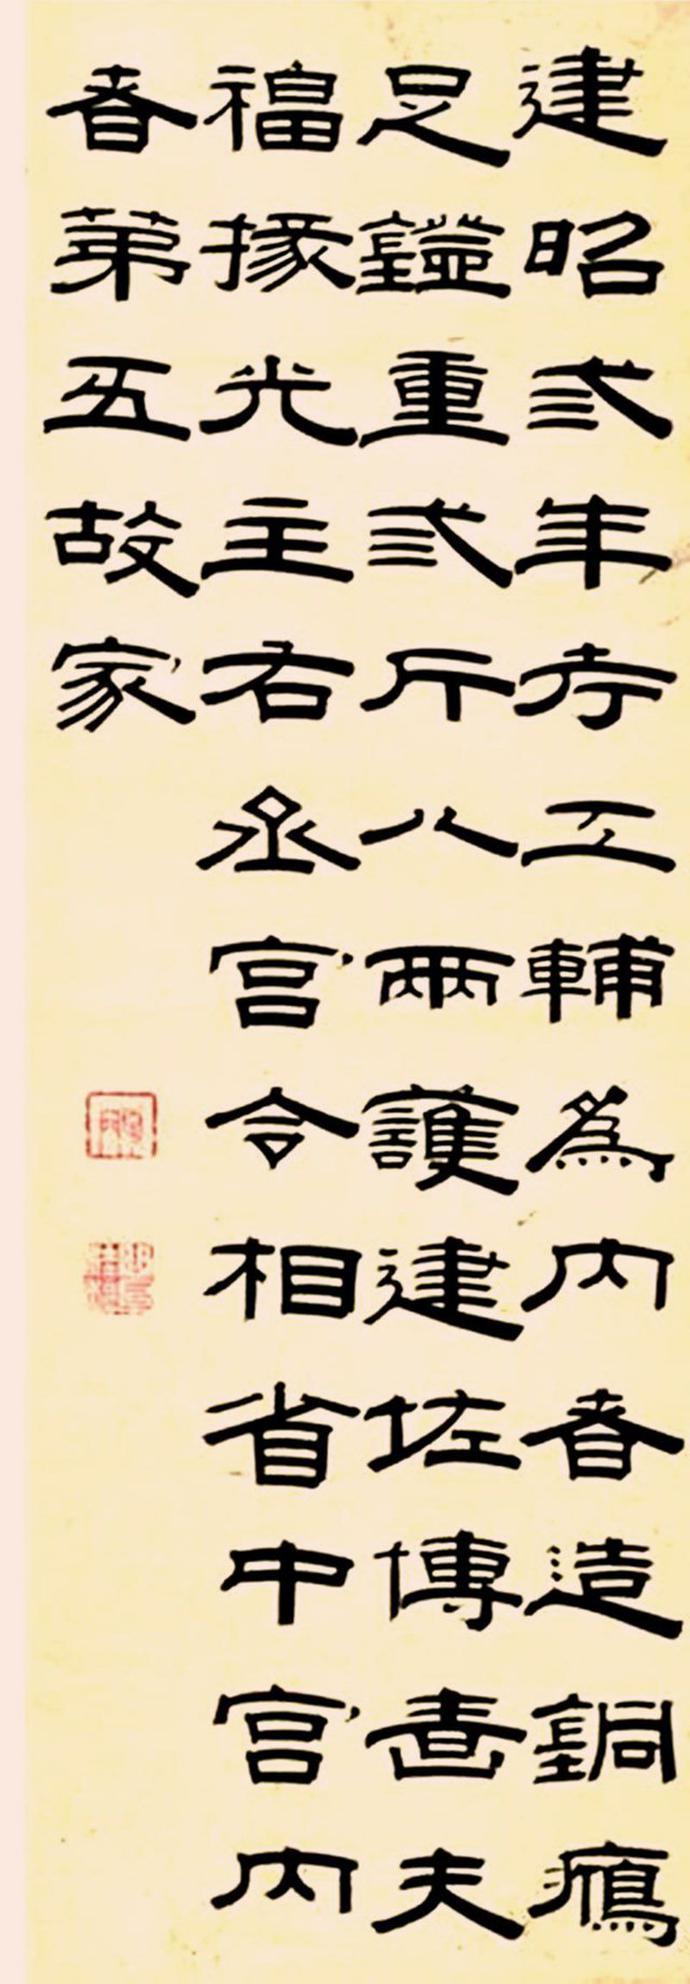 建昭弎年考工輔為内者造銅鴈
足鐙重弎斤八兩護建佐博嗇夫
福掾光主右丞宮令相省中宮内
者第五故家